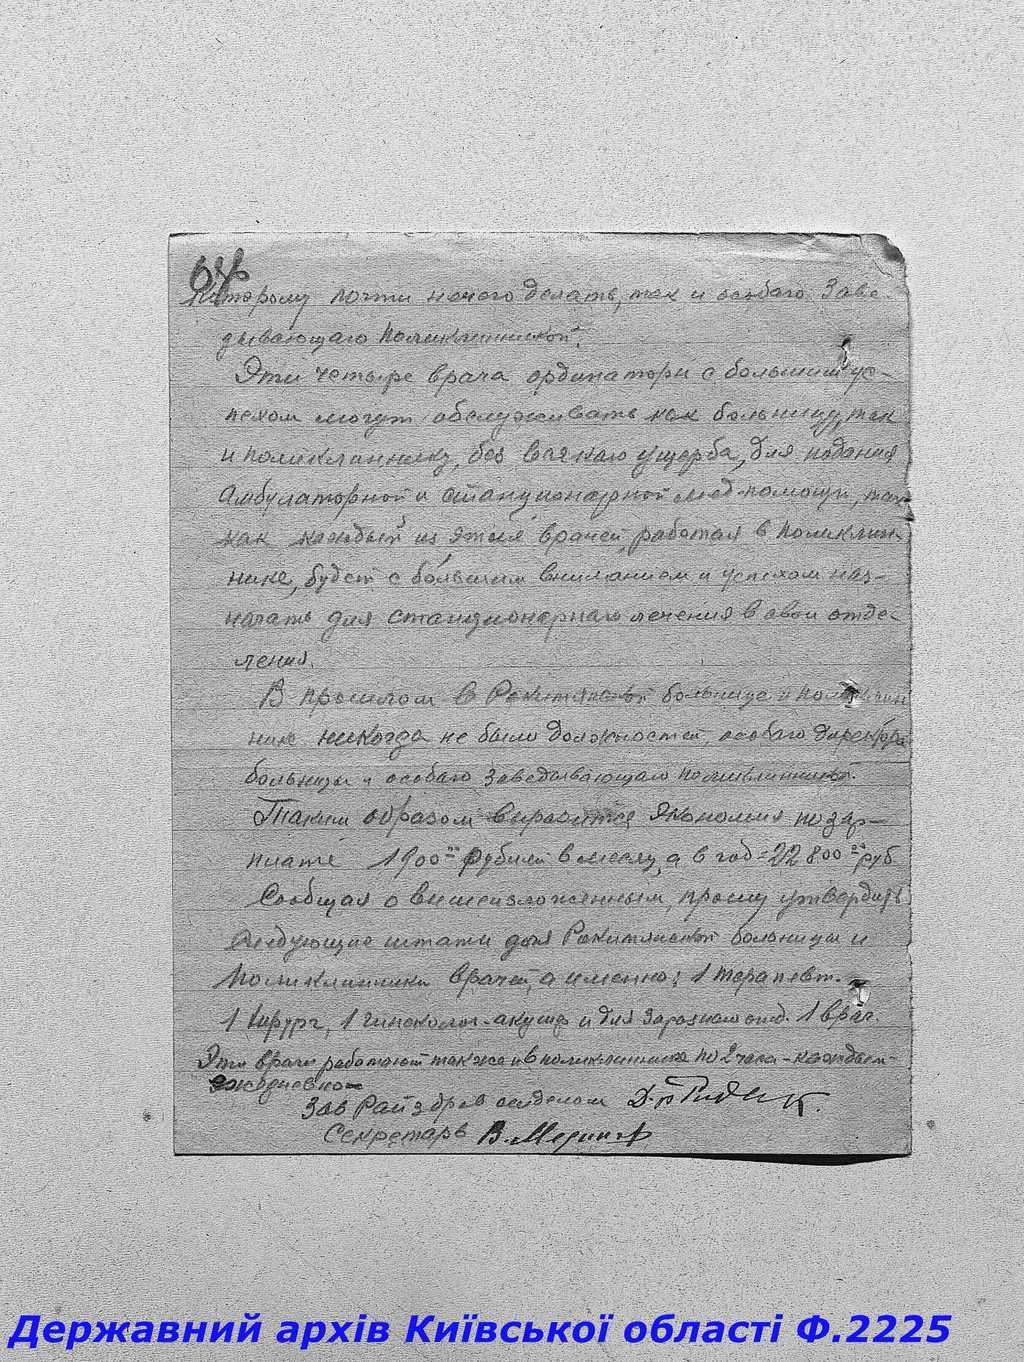 которому почти нечего делать, так и особаго Заве-
дывающаго поликлиникой.
Эти четыре врача ординатори с большим ус-
пехом могут обслуживать как больницу, так
и поликлиннику, без всякаго ущерба, для подания
Амбулаторной и стационарной мед-помощи, так
как каждый из этих врачей, работая в поликлин-
нике, будет с большим вниманием и успехом наз-
начать для стационарнаго лечения в свои отде-
ления.
В прошлом в Рокитянской больнице и поликлин
нике никогда не было должностей, особаго директора
больницы и особаго заведывающаго поликлинникой.
Таким образом выразится экономия по зар-
плате 1900 рублей в месяц, а в год = 22800 руб
Сообщая о вышеизложенным, прошу утвердить
следующие штаты для Рокитянской больницы и
поликлинники врачей, а именно: 1 терапевт.
1 хирург, 1 гинеколог-акушер и для заразнаго отд. 1 врач.
Эти врачи работают также и в поликлиннике по 2 часа - каждый -
ежедневно
Зав Райздрав отделом Д-р
Секретарь В.
Державний архів Київської області Ф.2225